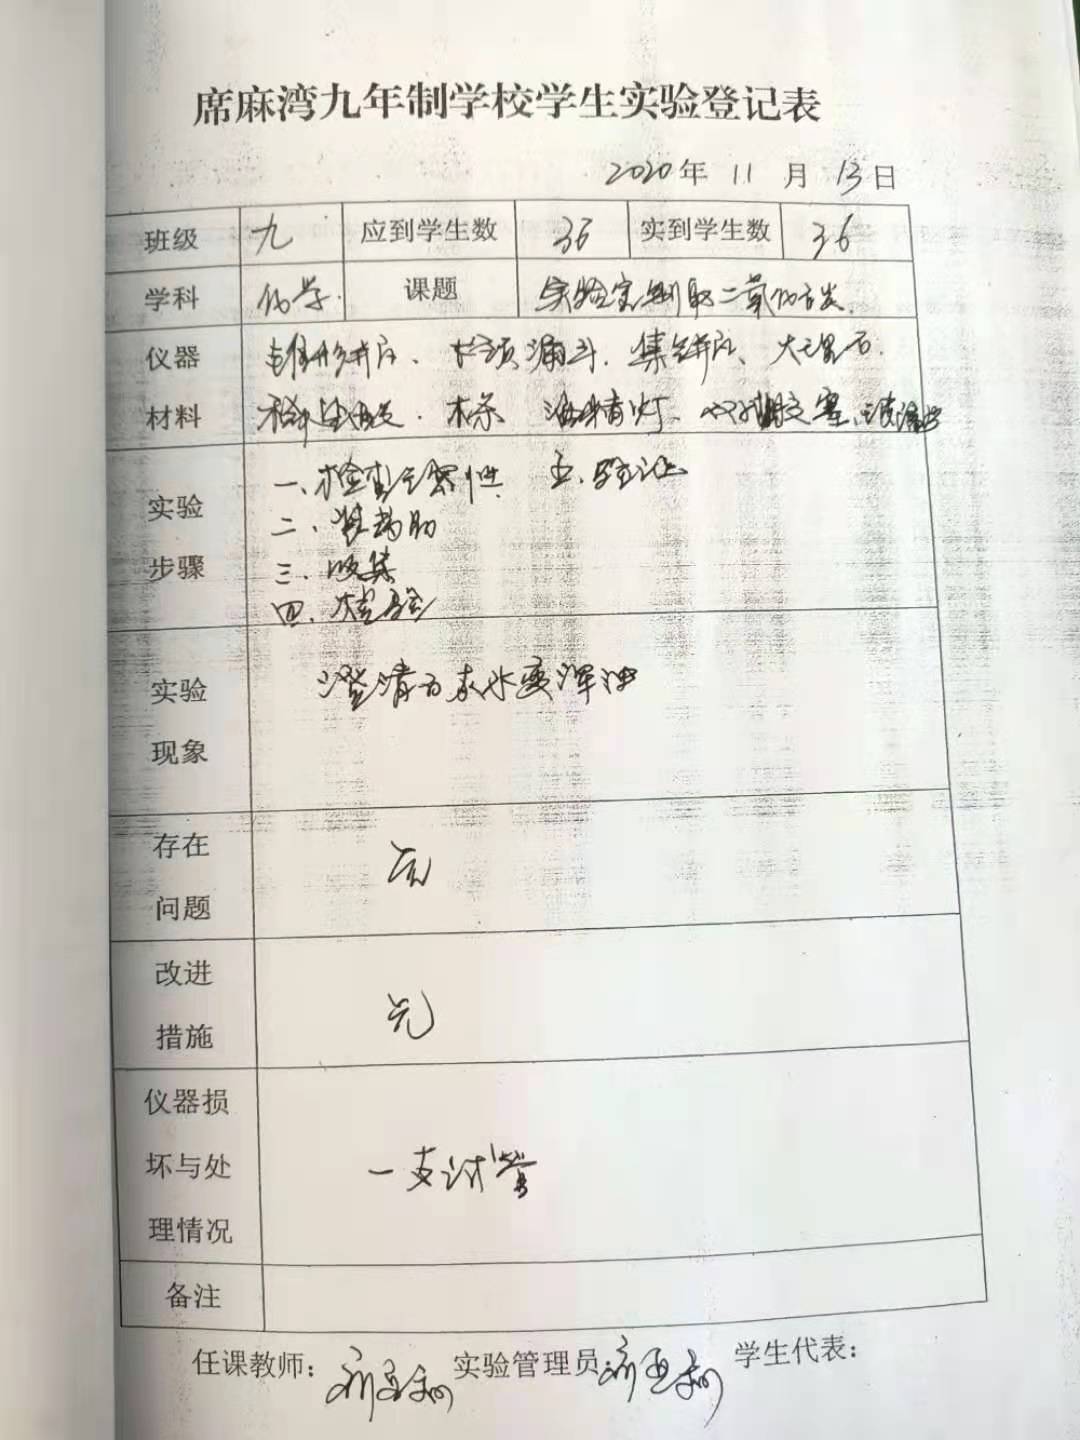 席麻湾九年制学校学生实验登记表
2020年 11 月 13日
班级 九 应到学生数 36 实到学生数 36
学科 化学. 课题 实验室制取二氧化碳.
仪器 锥形瓶、长颈漏斗、集气瓶、大理石.
材料 稀盐酸、木条 酒精灯、双孔胶塞、
实验 一、检查气密性 五、验证
二、装药品
步骤 三、收集
四、检验
实验 澄清石灰水变浑浊
现象
存在 无
问题
改进 无
措施
仪器损
坏与处 一支试管
理情况
备注
任课教师: 实验管理员: 学生代表: